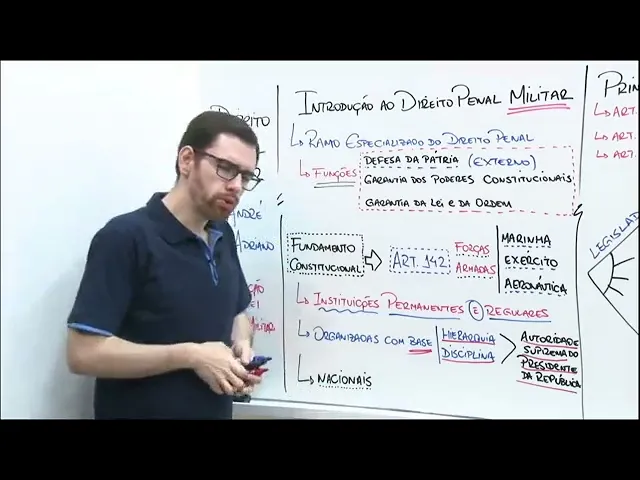 INTRODUÇÃO AO DIREITO PENAL MILITAR
RAMO ESPECIALIZADO DO DIREITO PENAL
FUNÇÕES
DEFESA DA PÁTRIA (EXTERNO)
GARANTIA DOS PODERES CONSTITUCIONAIS
GARANTIA DA LEI E DA ORDEM
FUNDAMENTO
CONSTITUCIONAL
ART. 142
FORÇAS
ARMADAS
MARINHA
EXÉRCITO
AERONÁUTICA
INSTITUIÇÕES PERMANENTES E REGULARES
ORGANIZADAS COM BASE
HIERARQUIA
DISCIPLINA
AUTORIDADE
SUPREMA DO
PRESIDENTE
DA REPÚBLICA
NACIONAIS
ANDRÉ
ADRIANO
ART.
ART.
ART.